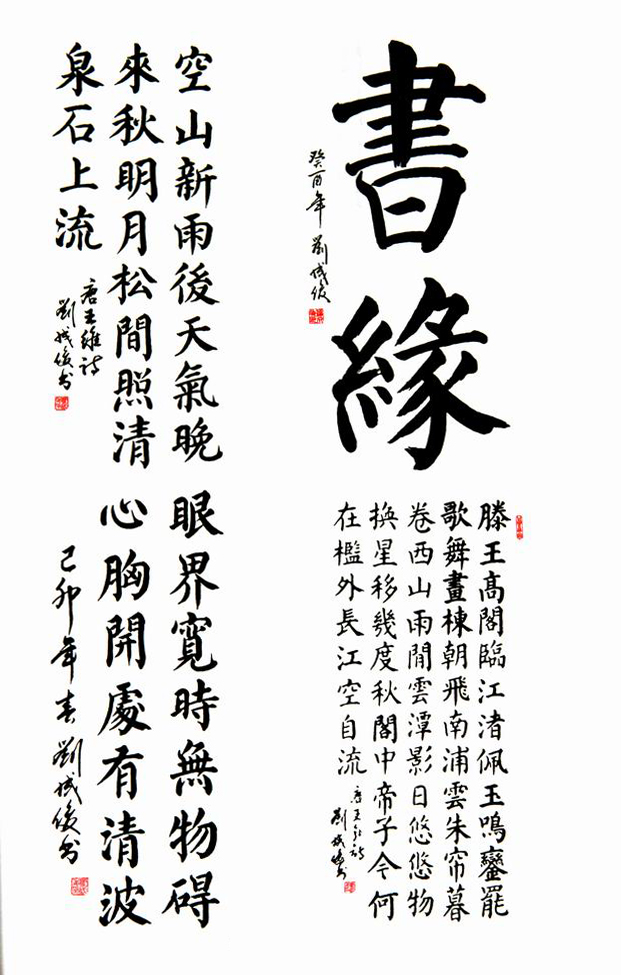 書緣
癸酉年 劉成俊
滕王高閣臨江渚佩玉鳴鑾罷
歌舞畫棟朝飛南浦雲朱帘暮
卷西山雨閒雲潭影日悠悠物
換星移幾度秋閣中帝子今何
在檻外長江空自流
唐王勃诗
劉成俊书
空山新雨後天氣晚
來秋明月松間照清
泉石上流
唐王維诗
劉成俊书
眼界寬時無物碍
心胸開處有清波
己卯年春劉成俊书